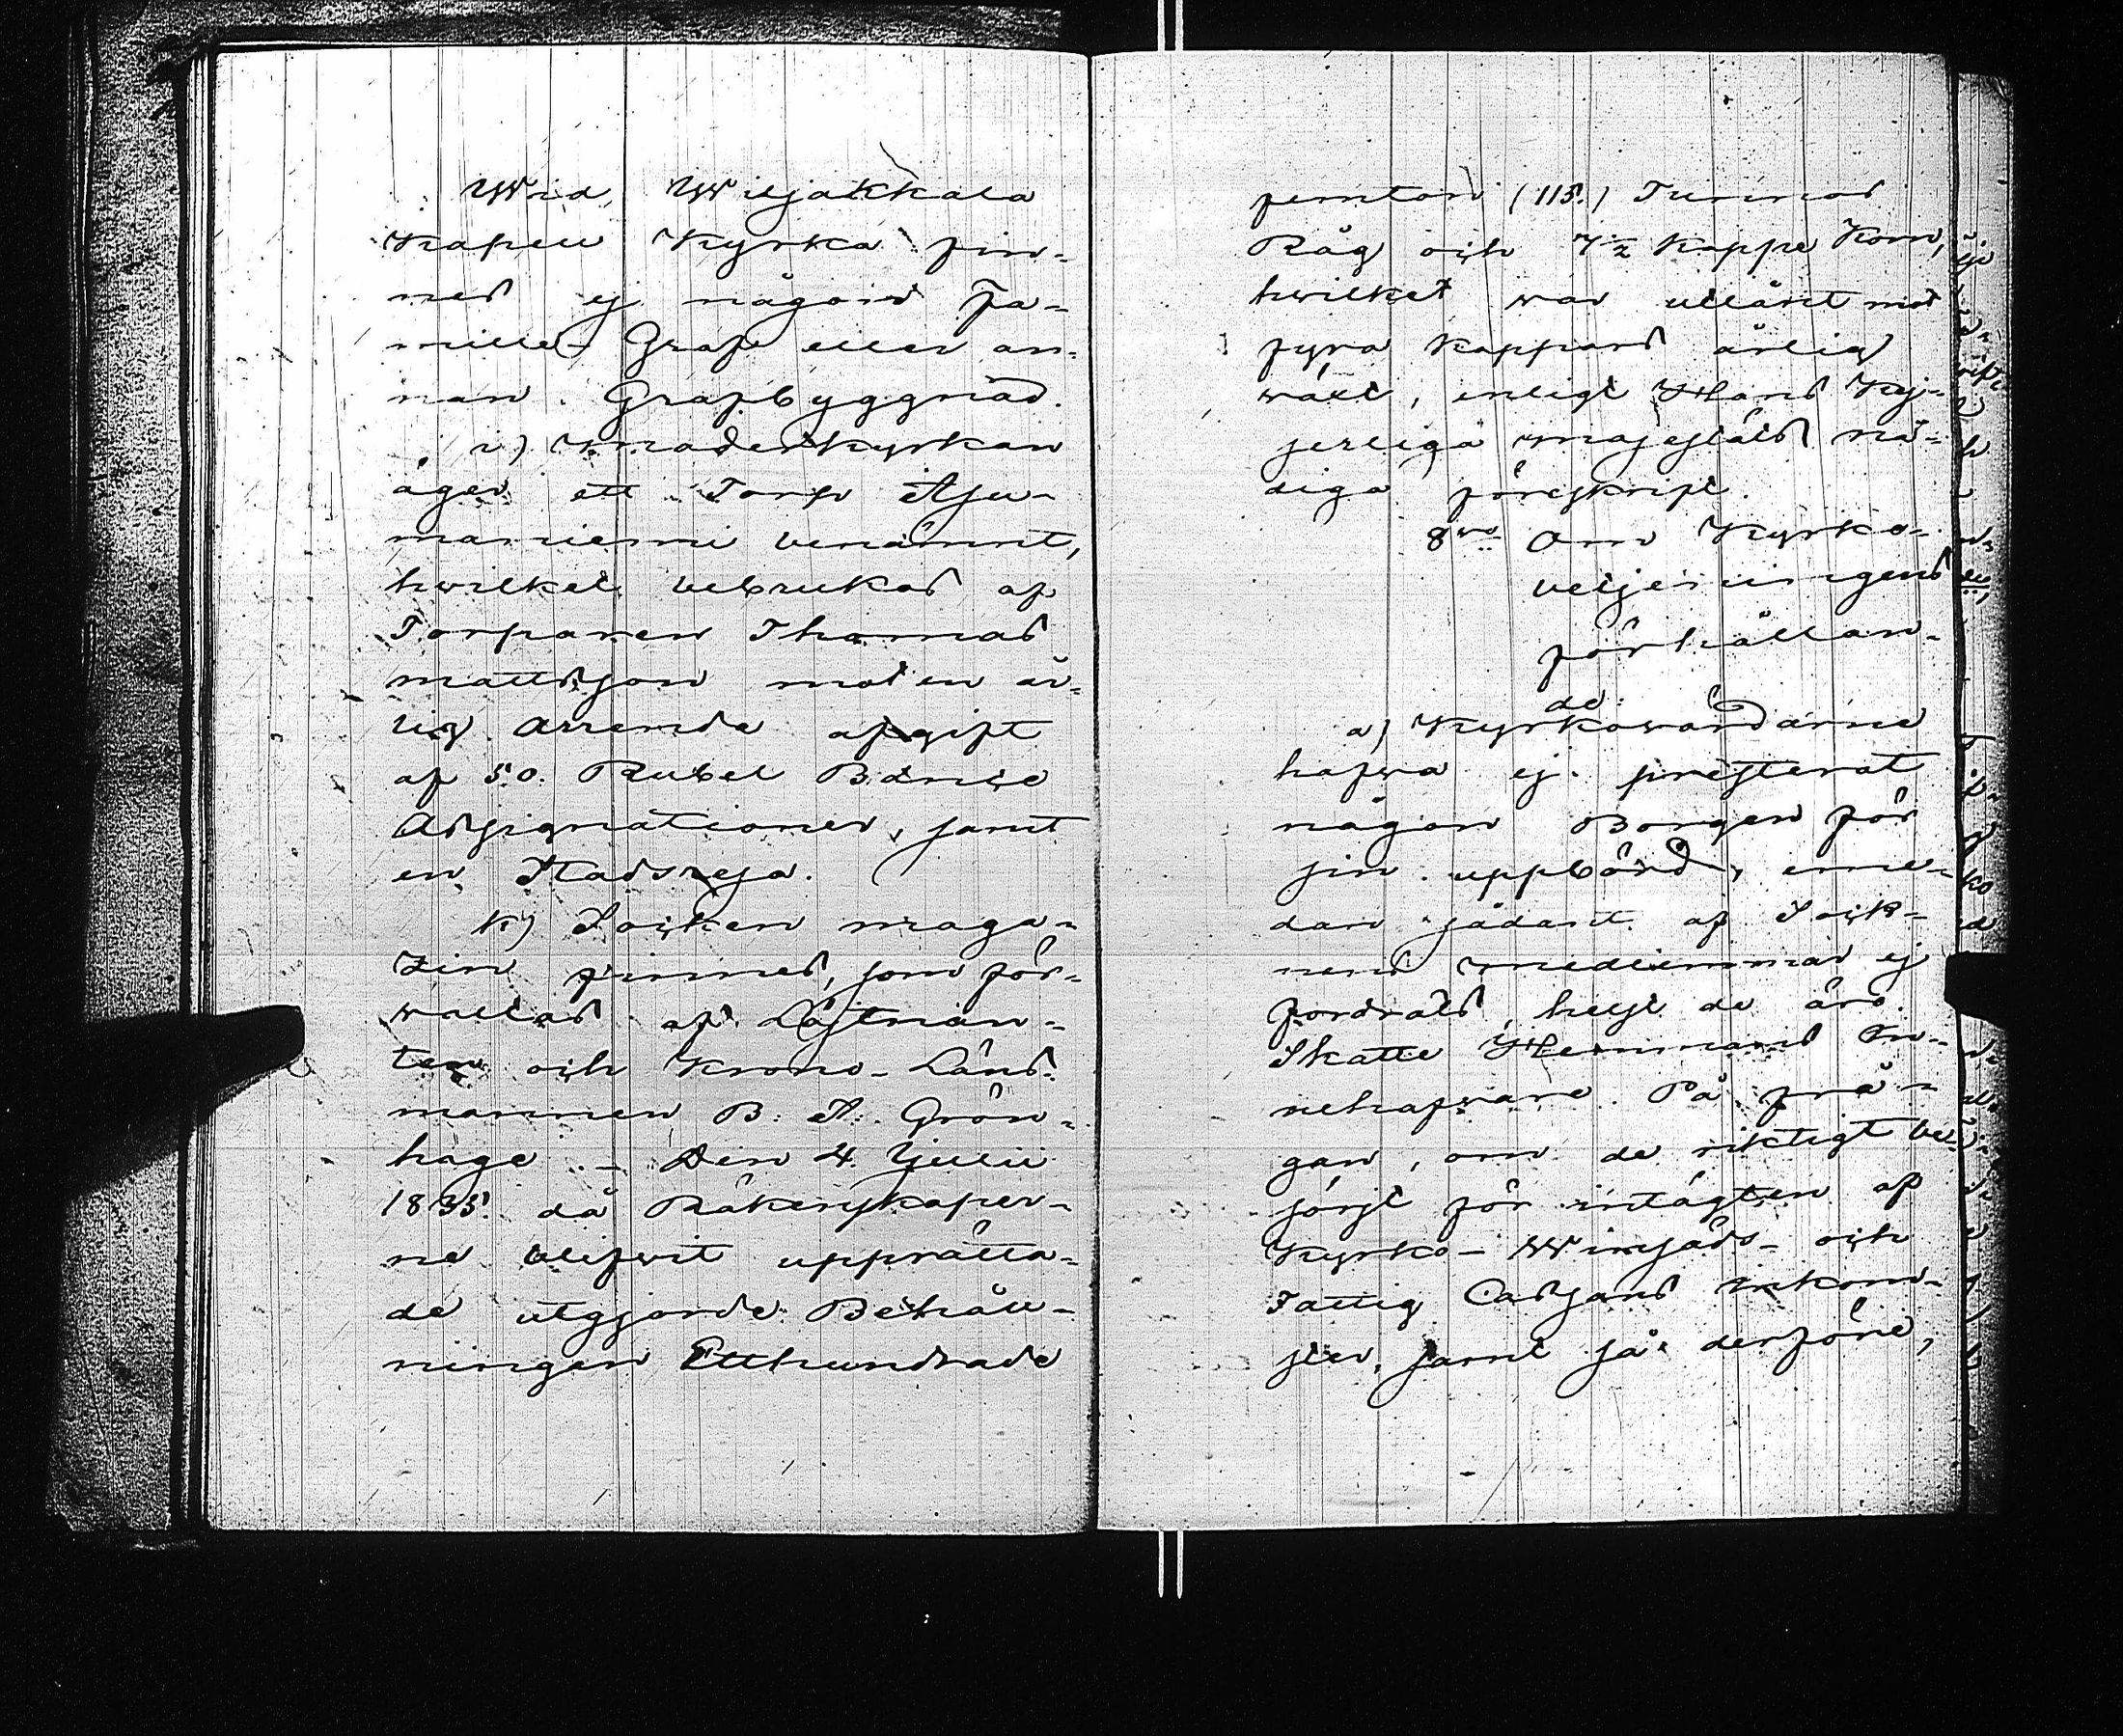 Wid Wiljakkala
Kapell Kyrka fin-
nes ej någon Fa-
mille Graf eller an-
nan Grafbyggnad.
i) Moderkyrkan
äger ett Torp
benämnt,
hwilket bebrukas af
Torparen Thomas
Mattsson mot en är-
lig Arrende afgift
af 50. Rubel Banco
Assignationer, samt
en
k) Socken maga-
zin finnes, som för-
waltas af Löjtnan-
ten och Krono-Läns-
mannen B. A. Grön-
hage. - Den 4 Julii
1835. då Räkenskaper-
ne blifwit upprätta-
de utgjorde Behåll-
ningen Etthundrade
femton (115.) Tunnor
Råg och 7½ Kappe Korn,
hwilket war utlånt mot
fyra Kappars årlig
wäxt, enligt Hans Kej-
serliga Majestäts nå-
diga föreskrift.
8vo Om Kyrko-
betjeningens
förhållan-
de
a) Kyrkowärdarne
hafwa ej presterat
någon Borgen för
sin uppbörd, eme-
dan sådant af Sock-
nens medlemmar ej
fordrats, helst de äro
Skatte Hemmans In-
nehafware. På frå-
gan, om de riktigt be-
sörjt för intägten af
Kyrko- Winsäds- och
Fattig Cassans inkom-
ster, samt så derföre,